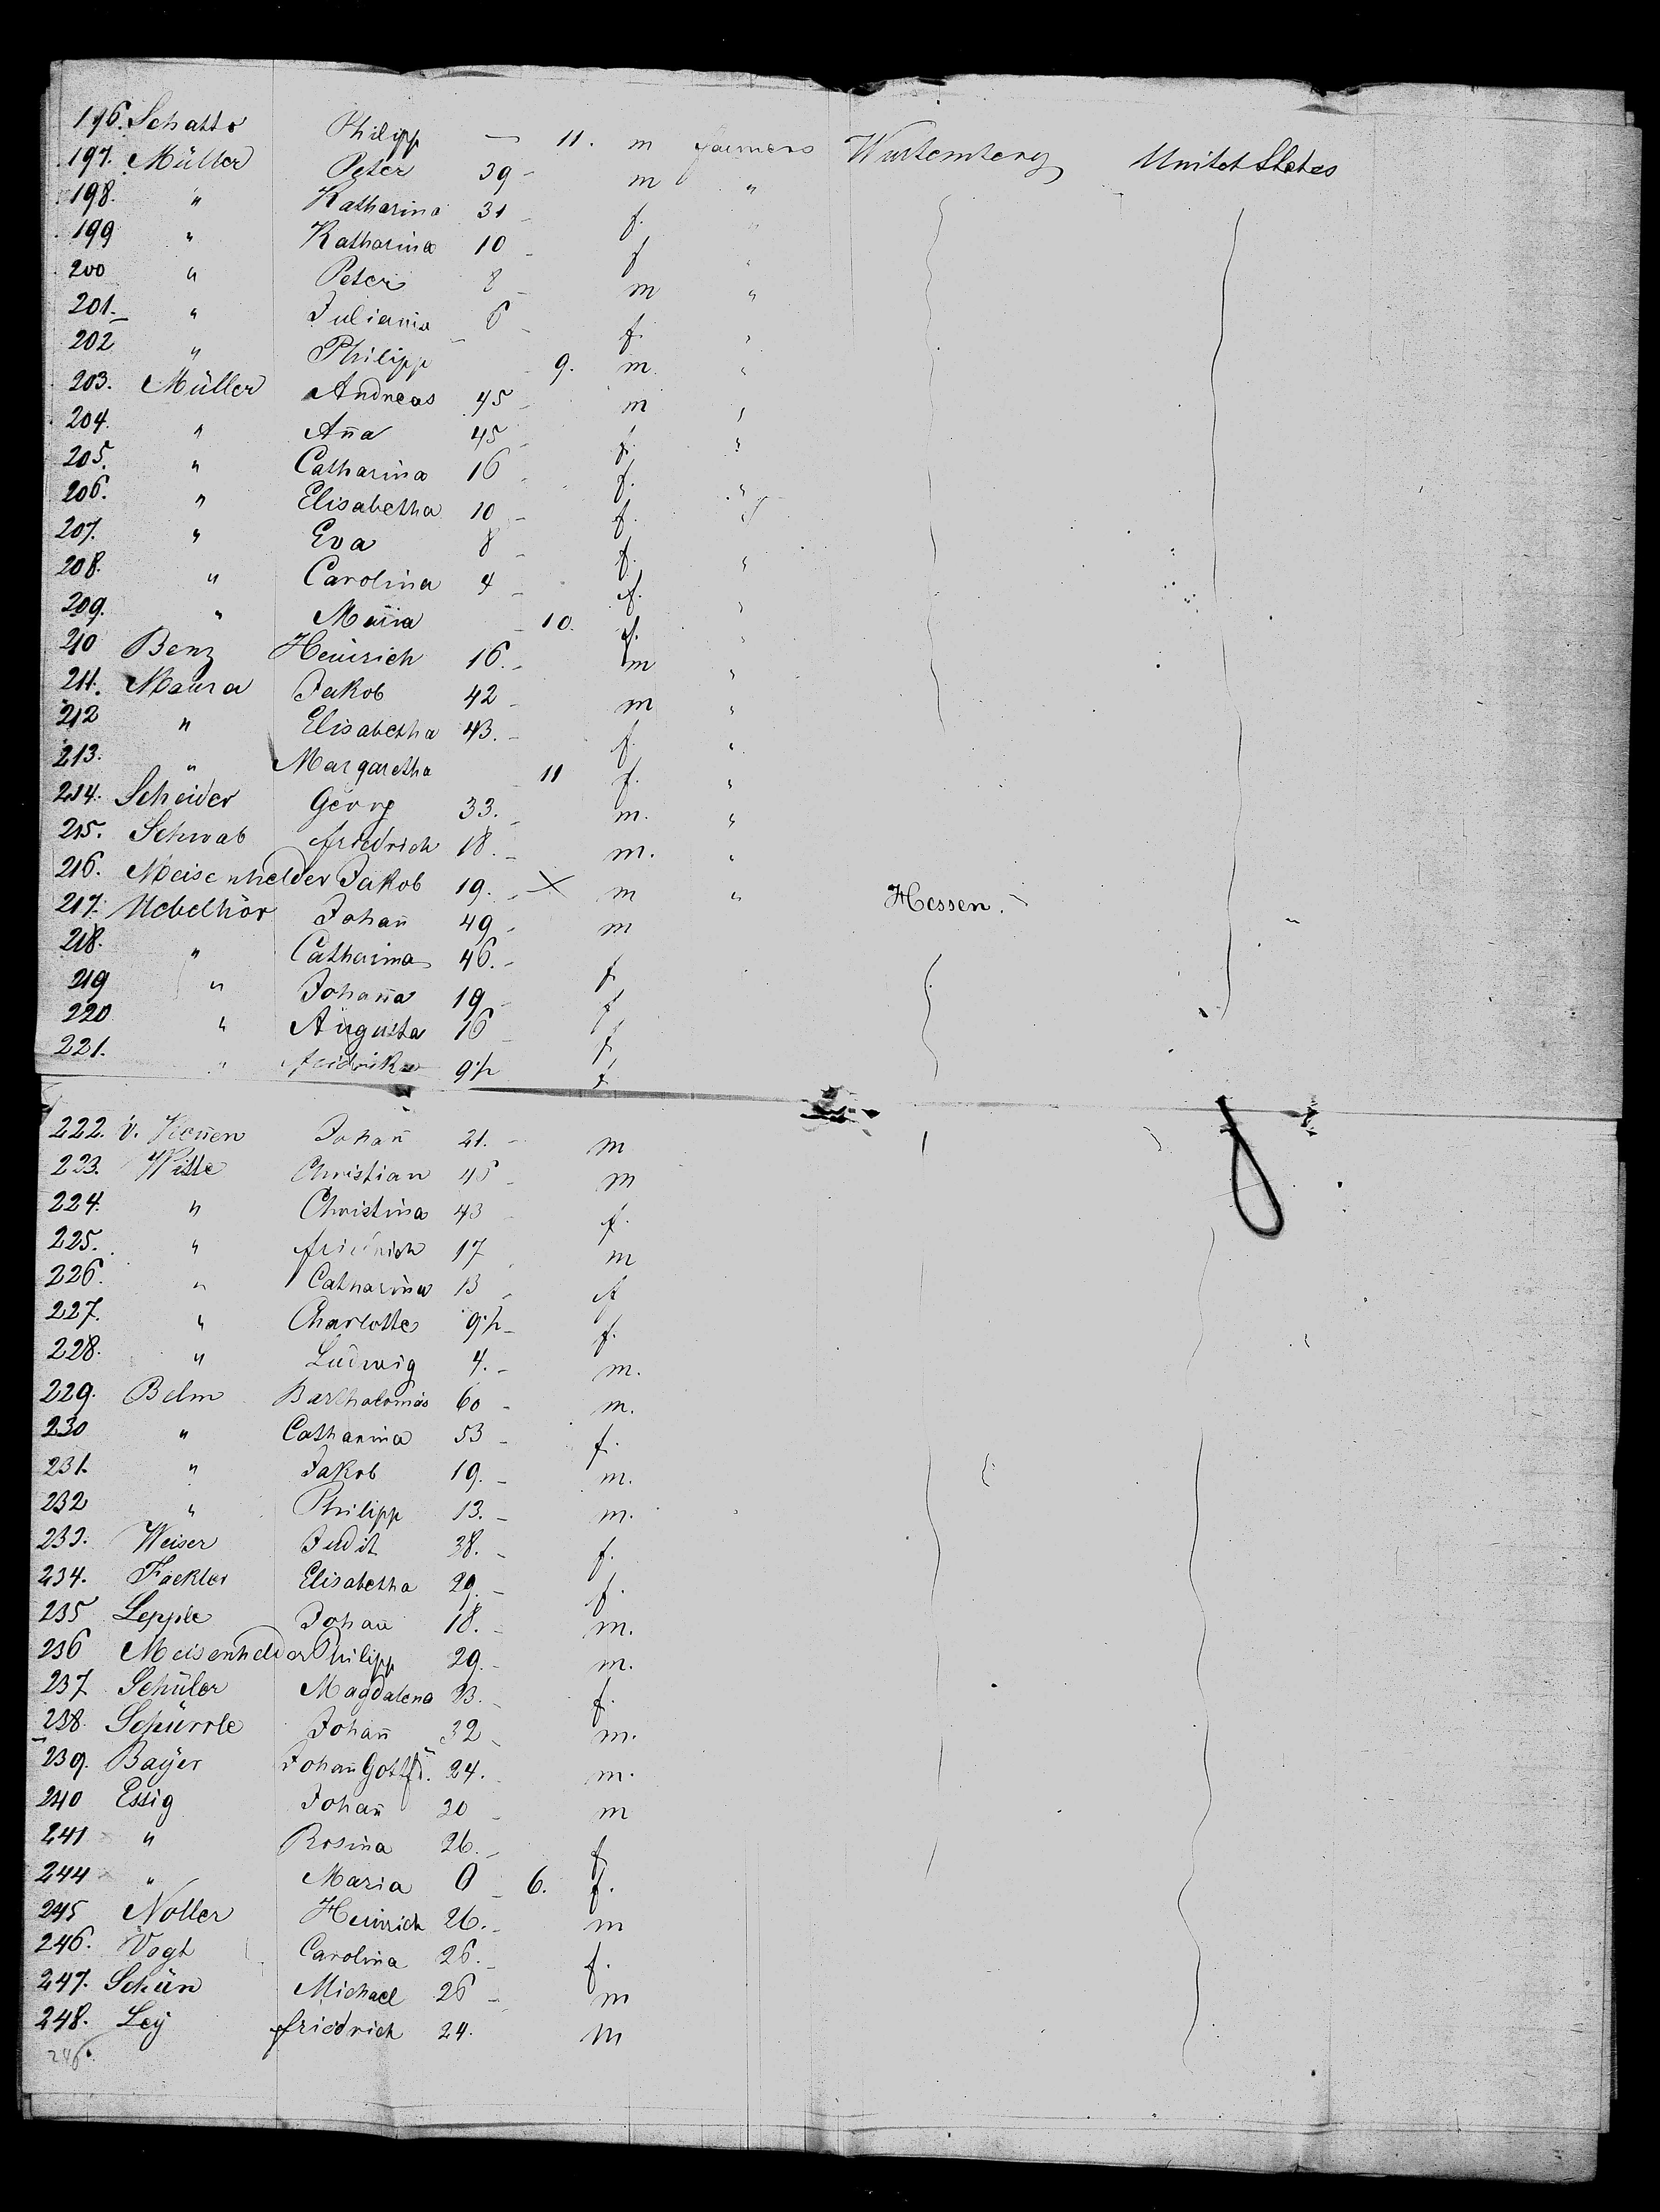 196. Schatto Philipp — 11. m farmers Wurtemberg Unitet States
197. Müller Peter 39 - m "
198. " Katharina 31 - f. "
199 " Katharina 10 - f "
200 " Peter 8 - m "
201. " Julianna 6 - f. "
202 " Philipp 9. m. "
203. Müller Andreas 45 - m "
204. " Aña 45 - f. "
205. " Catharina 16 - f. "
206. " Elisabetha 10 - f. "
207. " Eva 8 - f. "
208. " Carolina 4 - f. "
209. " 10. f. "
210 Benz Heinrich 16. - m "
211. Maura Jakob 42 - m "
212 " Elisabetha 43. - f. "
213. " Margaretha 11 f. "
214. Scheider Georg 33. - m. "
215. Schwab friedrich 18. - m. "
216. Meisenhelder Jakob 19. - X m " Hessen. "
217. Uebelhör Johañ 49 - m
218. " Catharina 46. - f
219 " Johaña 19 - f
220 " Augusta 16 - f
221. " fridrika 9½ f
222. v. Keñen Johañ 21. - m
223. Witte Christian 45 - m
224. " Christina 43 f.
225. " friedrich 17 m
226. " Catharina 13 - f
227. " Charlotte 9½ - f.
228. " Ludwig 4. - m.
229. Belm Bartholomäs 60 - m.
230 " Catharina 53 - f.
231. " Jakob 19. - m.
232 " Philipp 13. - m.
233. Weiser Judit 38. - f.
234. Fackler Elisabetha 29. - f.
235 Lepple Johañ 18. - m.
236 Meisenhelder Philipp 29. - m.
237 Schüler Magdalena 23. - f.
238. Schürrle Johañ 32 - m.
239. Bayer Johañ Gottfd. 24. - m.
240 Essig Johañ 30 - m
241 " Rosina 26. - f
244 " Maria 0 - 6. f.
245 Noller Heinrich 26. - m
246. Vogt Carolina 26. - f.
247. Schün Michael 26 - m
248. Ley friedrich 24. m
246.